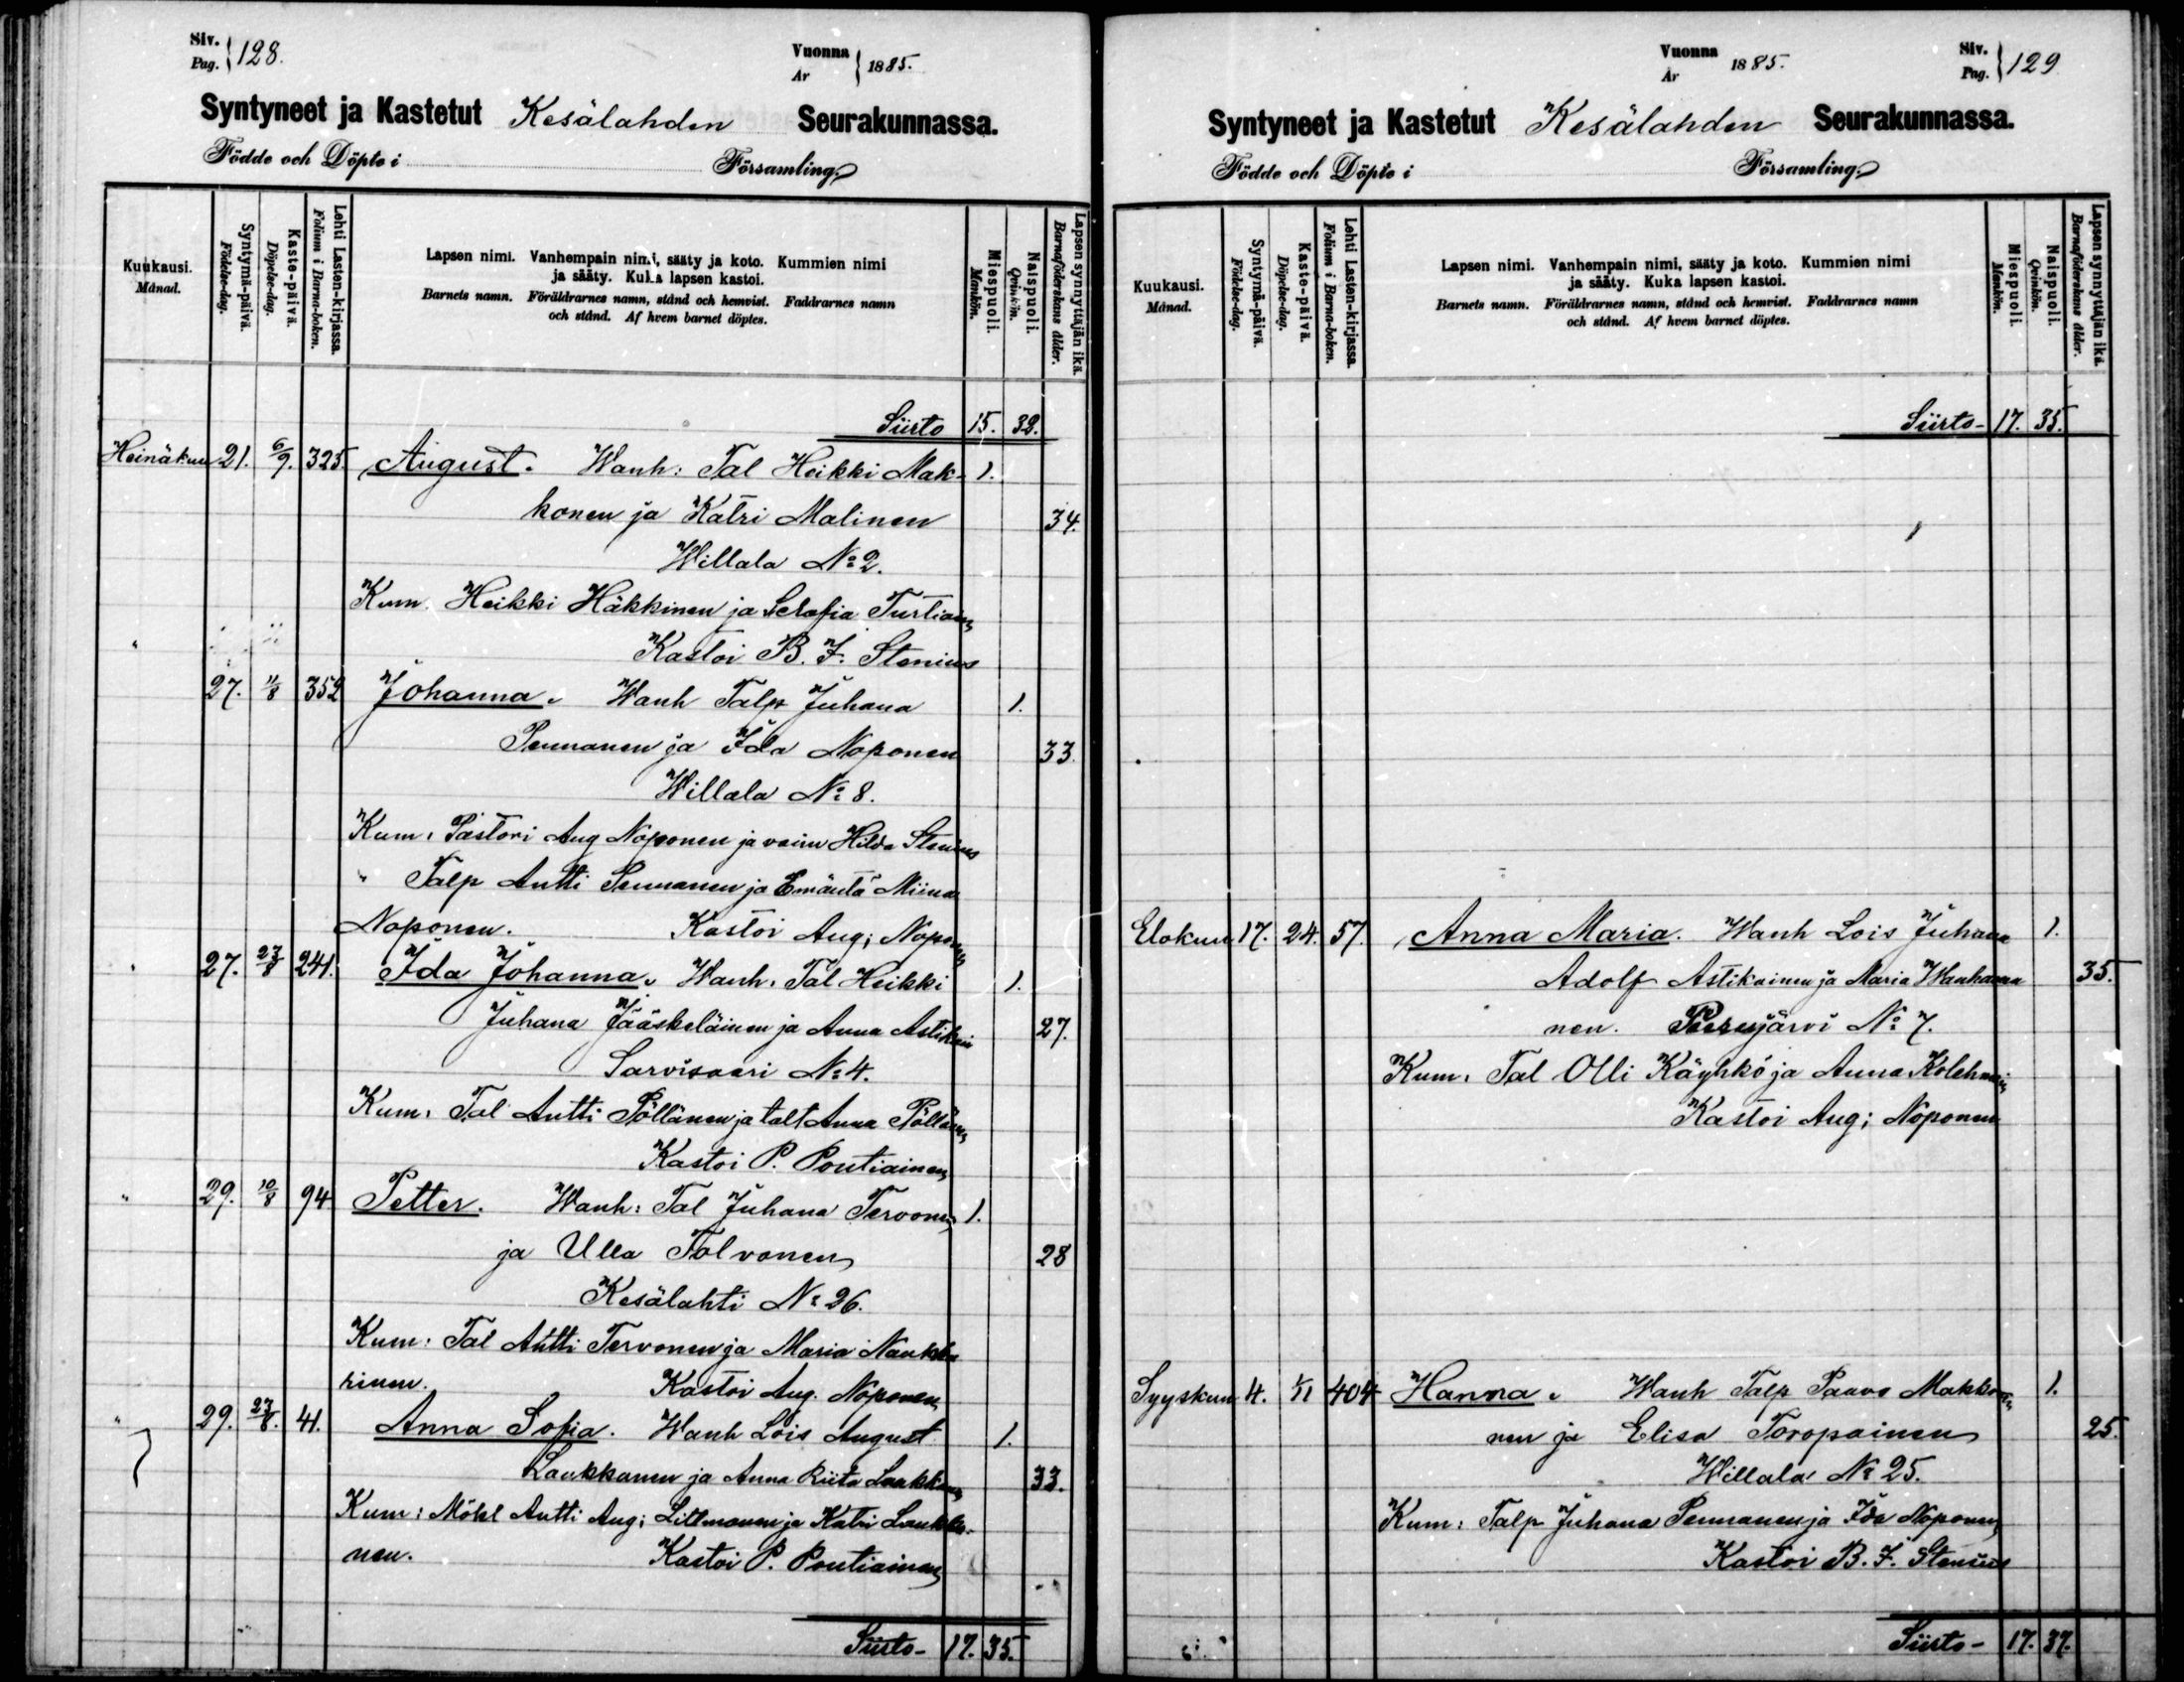 Siv.
Pag. 128.
Vuonna
År 1885.
Syntyneet ja Kastetut Kesälahden Seurakunnassa.
Födde och Döpte i Församling.
Kuukausi.
Månad.
Syntymä-päivä.
Födelse-dag.
Kaste-päivä.
Döpelse-dag.
Lehti Lasten-kirjassa.
Folium i Barna-boken.
Lapsen nimi. Vanhempain nimi, sääty ja koto. Kummien nimi
ja sääty. Kuka lapsen kastoi.
Barnets namn. Föräldrarnes namn, stånd och hemvist. Faddrarnes namn
och stånd. Af hvem barnet döptes.
Miespuoli.
Mankön.
Naispuoli.
Qvinkön.
Lapsen synnyttäjän ikä.
Barnaföderskans ålder.
Siirto 15. 32.
Heinäkuu 21. 6/9. 325. August. Wanh: Tal Heikki Mak- 1.
konen ja Katri Malinen 34.
Willala No 2.
Kum. Heikki Häkkinen ja Serafia Turtiain
" Kastoi B. F. Stenius
27. 11/8 352 Johanna. Wanh Talp Juhana 1.
Pennanen ja Ida Noponen 33.
Willala No 8.
Kum. Pastori Aug Noponen ja vaimo Hilda Stenius
" Talp Antti Pennanen ja Emäntä Miina
Noponen. Kastoi Aug; Noponen
" 27. 23/8 241. Ida Johanna. Wanh. Tal Heikki 1.
Juhana Jääskeläinen ja Anna Astikai 27.
Sarvisaari No 4.
Kum. Tal Antti Pöllänen ja talt Anna Pöllänen
Kastoi P. Pontiainen
" 29. 10/8 94 Petter. Wanh: Tal Juhana Tervonen 1.
ja Ulla Tolvonen 28
Kesälahti No 26.
Kum: Tal Antti Tervonen ja Maria Naukka
rinen. Kastoi Aug. Noponen
" 29. 23/8. 41. Anna Sofia. Wanh Lois August 1.
Laukkanen ja Anna Riita Laukkanen 33.
Kum: Mökl Antti Aug; Littmanen ja Katri Laukka-
nen. Kastoi P. Pontiainen
Siirto- 17. 35.
Vuonna
År 1885.
Siv.
Pag. 129
Syntyneet ja Kastetut Kesälahden Seurakunnassa.
Födde och Döpte i Församling.
Kuukausi.
Månad.
Syntymä-päivä.
Födelse-dag.
Kaste-päivä.
Döpelse-dag.
Lehti Lasten-kirjassa.
Folium i Barna-boken.
Lapsen nimi. Vanhempain nimi, sääty ja koto. Kummien nimi
ja sääty. Kuka lapsen kastoi.
Barnets namn. Föräldrarnes namn, stånd och hemvist. Faddrarnes namn
och stånd. Af hvem barnet döptes.
Miespuoli.
Mankön.
Naispuoli.
Qvinkön.
Lapsen synnyttäjän ikä.
Barnaföderskans ålder.
Siirto- 17. 35.
Elokuu 17. 24. 57. Anna Maria. Wanh Lois Juhana 1.
Adolf Astikainen ja Maria Wanha 35.
nen. No 7.
Kum. Tal Olli Käyhkö ja Anna Kolehmain
Kastoi Aug; Noponen
Syyskuu 4. 1/11 404 Hanna. Wanh Talp Paavo Makko 1.
nen ja Elisa Toropainen 25.
Willala No 25.
Kum: Talp Juhana Pennanen ja Ida Noponen
Kastoi B. F. Stenius
Siirto- 17. 37.